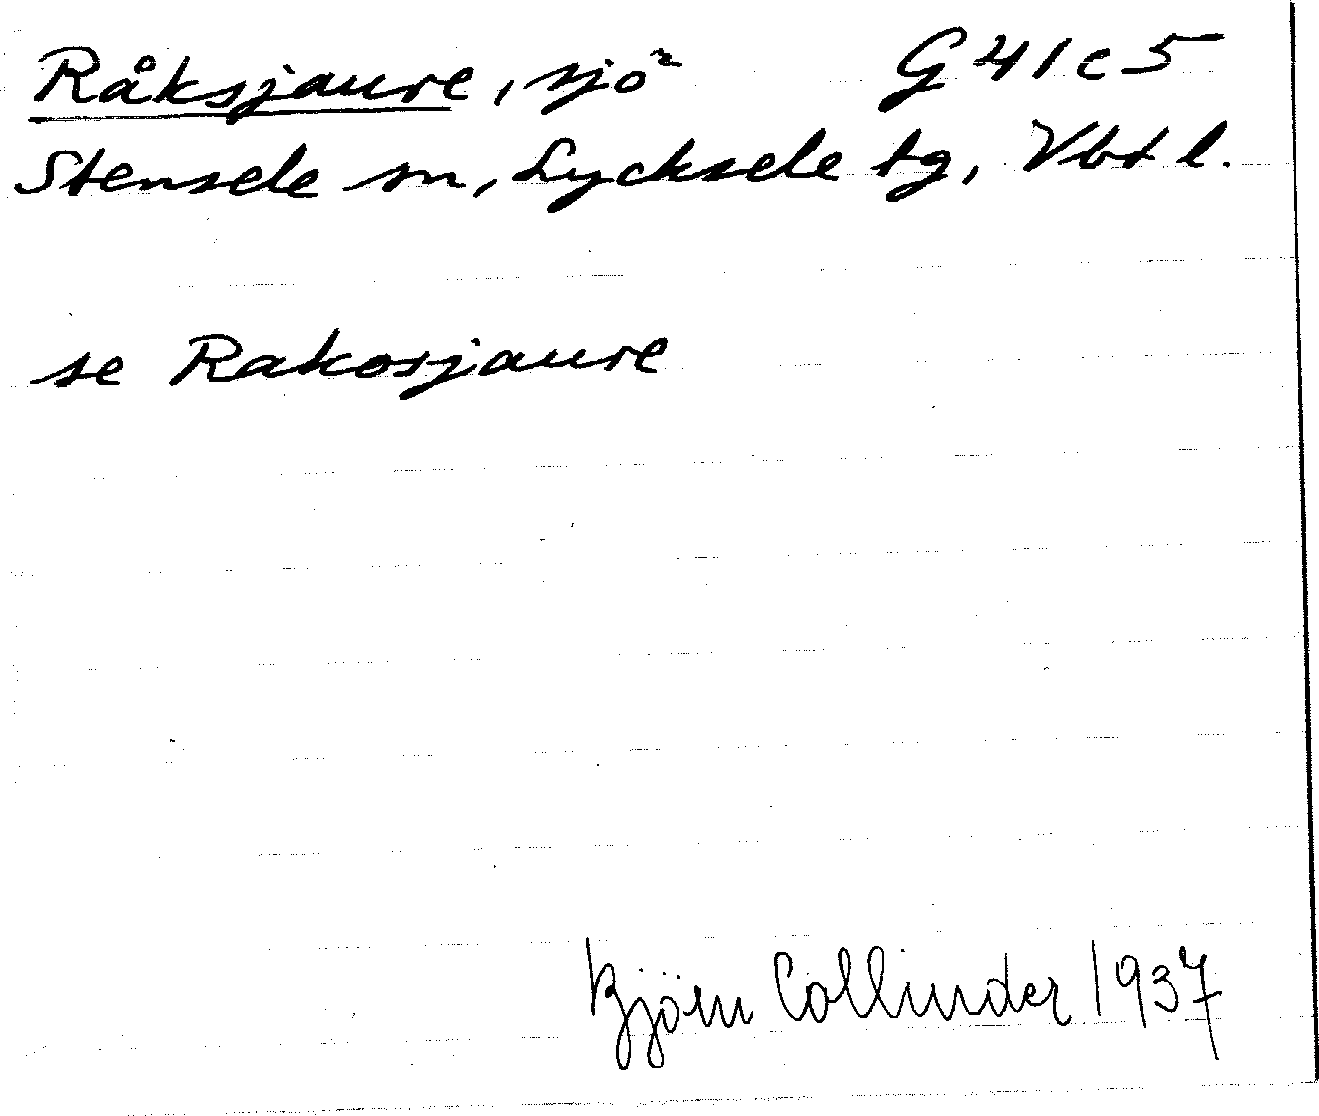 Råksjaure, sjö G 41 c 5
Stensele sn, Lycksele tg, Vbtl.
se Rakosjaure
Björn Collinder 1937